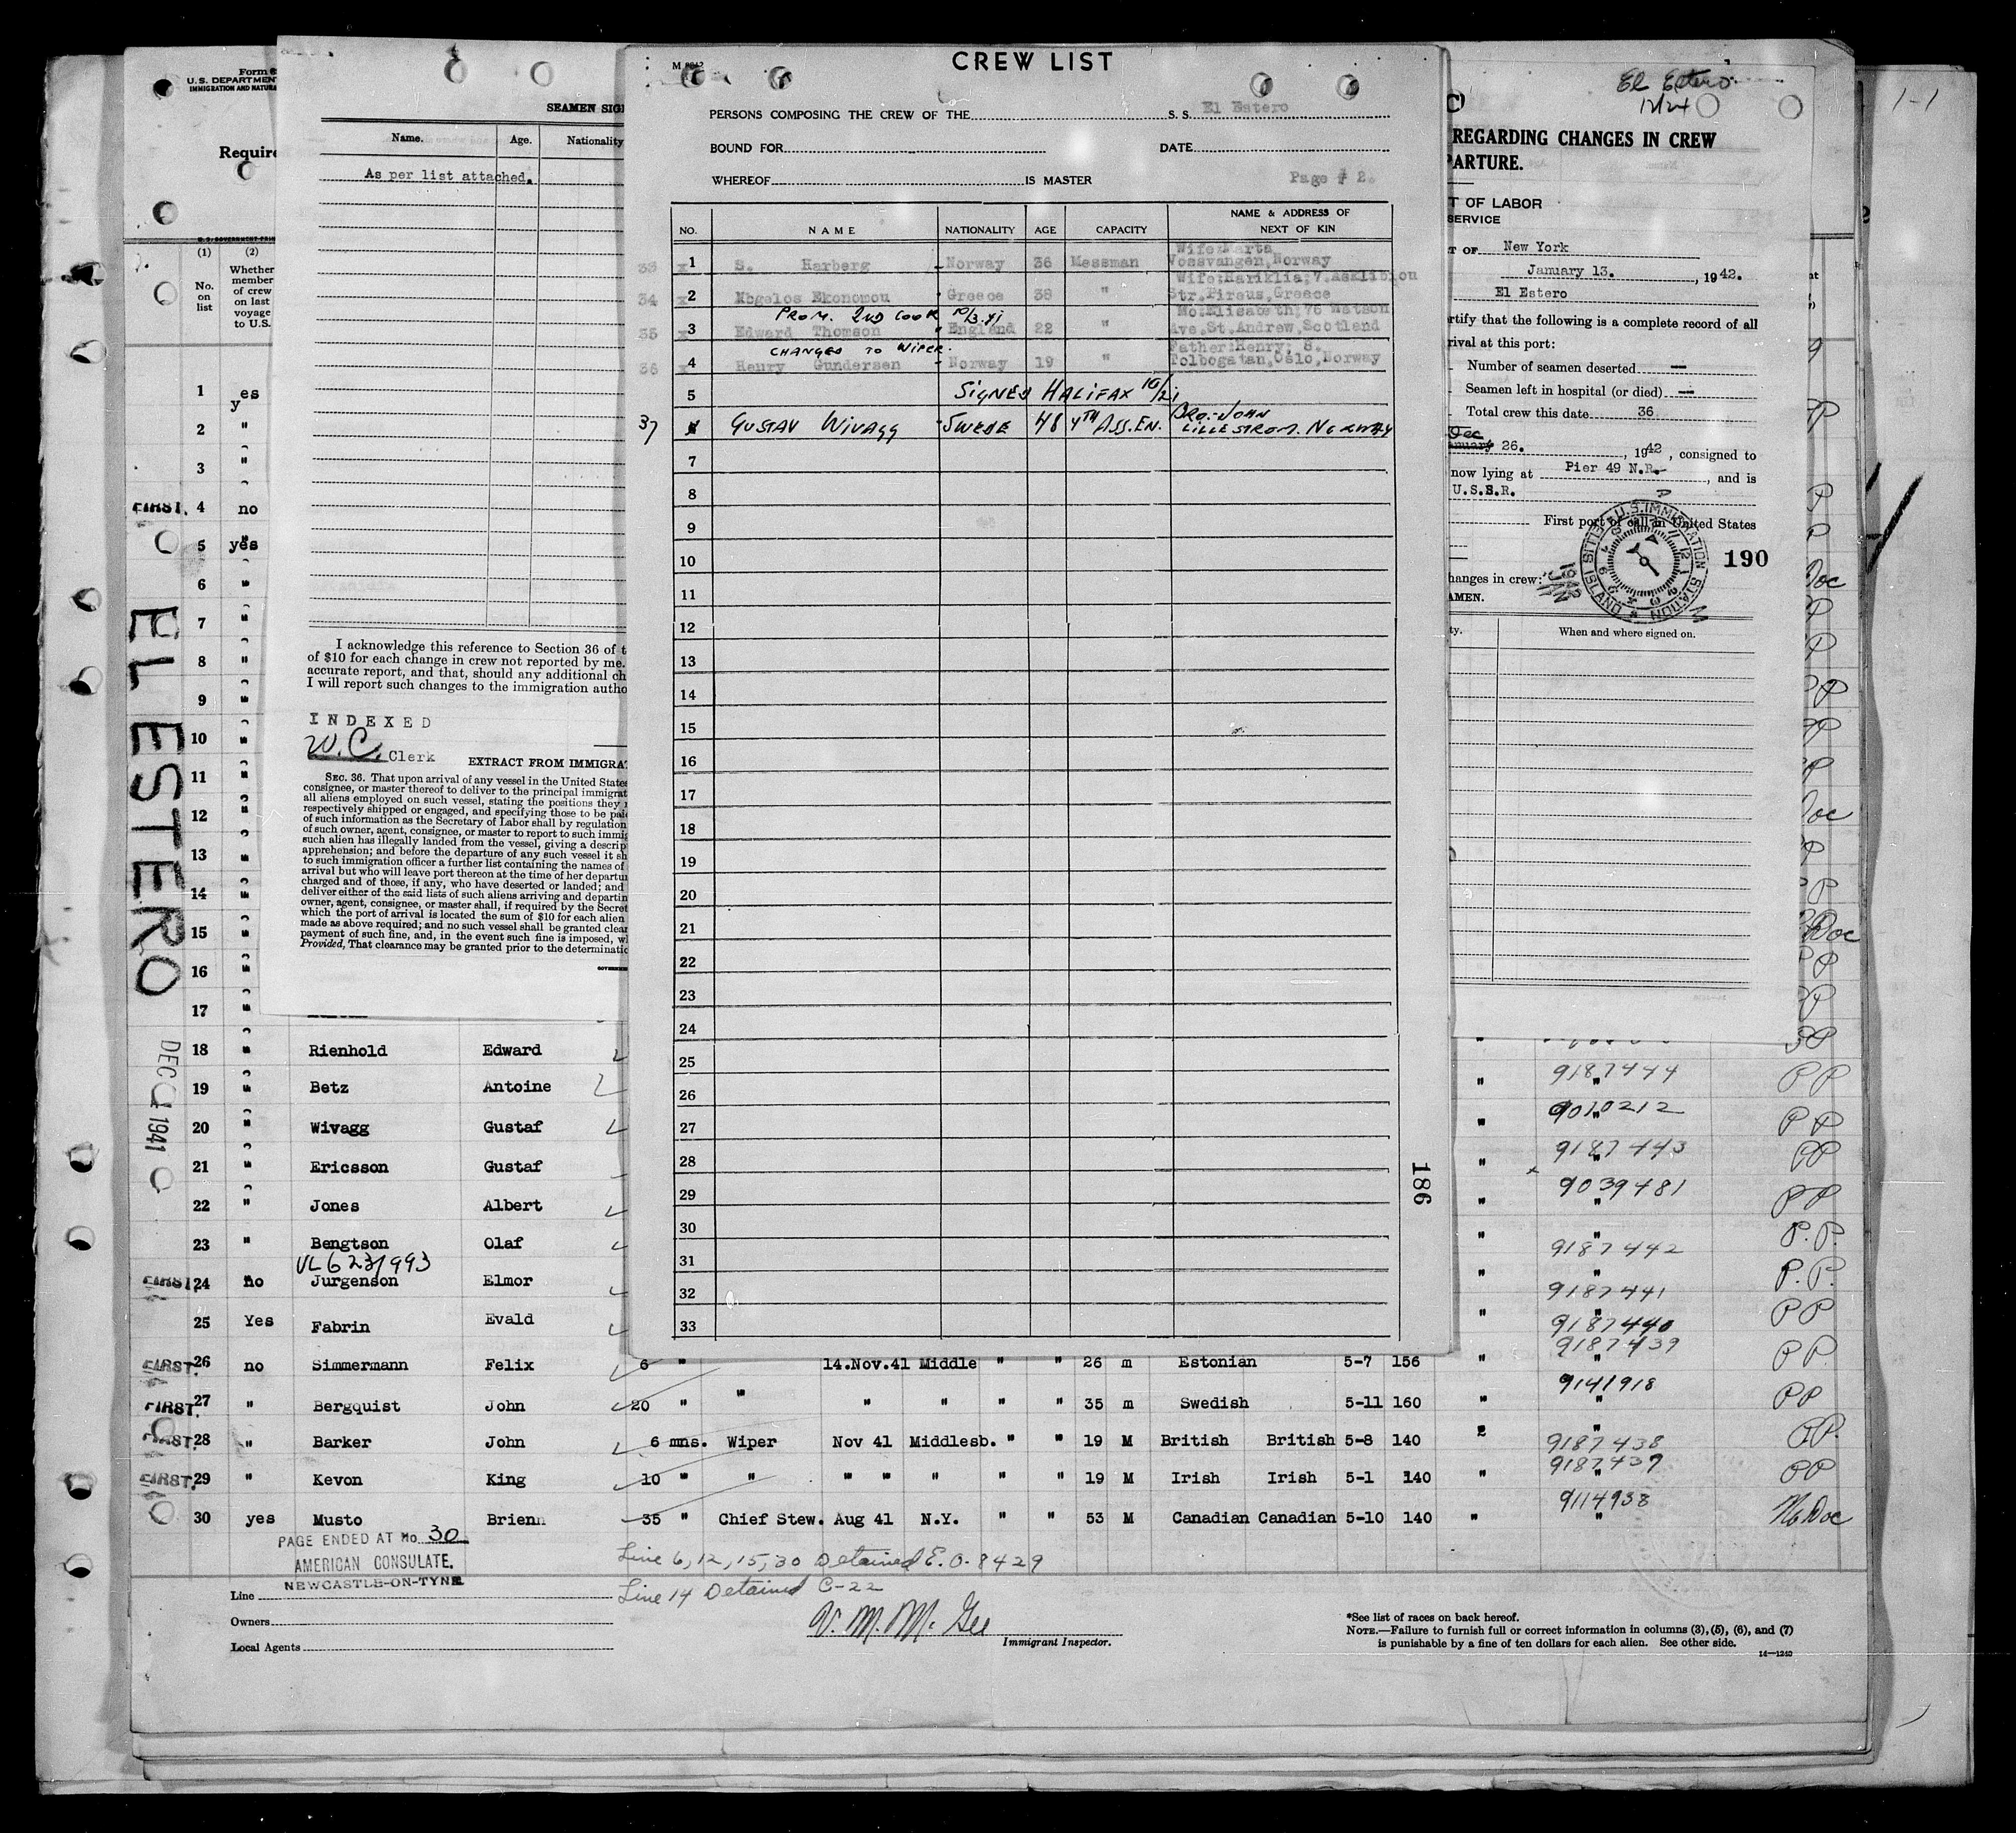 CREW LIST
PERSONS COMPOSING THE CREW OF THE S. S. El Estero
BOUND FOR DATE
WHEREOF IS MASTER Page # 2.
NO. NAME NATIONALITY AGE CAPACITY NAME & ADDRESS OF NEXT OF KIN
Wife: Marta
33 x 1 S. Harberg Norway 36 Messman Vossvangen, Norway
Wife: Hariklia; 7. Asklipiou
34 x 2 Ekonomou Greece 38 " Str. Pireus, Greece
PROM. 2ND COOK Mo: Elisabeth; 76 Watson
35 x 3 Edward Thomson England 22 " Ave, St. Andrew, Scotland
CHANGED TO WIPER. Father: Henry; 8.
36 x 4 Henry Gundersen Norway 19 " Tolbogatan, Oslo, Norway
5 SIGNED HALIFAX
BRO: JOHN
37 GUSTAV WIVAGG SWEDE 48 4TH ASS. EN. LILLESTROM. NORWAY
7
8
9
10
11
12
13
14
15
16
17
18
19
20
21
22
23
24
25
26
27
28
29
30
31
32
33
186
Form
U. S. DEPARTMEN
IMMIGRATION AND NATURA
Require
(1) (2)
No. on list
Whether member of crew on last voyage to U.S.
1 yes
2 "
3 "
FIRST. 4 no
5 yes
6 "
7 "
8 "
9 "
10 "
11 "
12 "
13 "
14 "
15 "
16 "
17 "
EL ESTERO
DEC 1941
SEAMEN SIG
Name. Age. Nationality
As per list attached.
I acknowledge this reference to Section 36 of t
of $10 for each change in crew not reported by me.
accurate report, and that, should any additional ch
I will report such changes to the immigration autho
INDEXED
W.C. Clerk
EXTRACT FROM IMMIGRA
SEC. 36. That upon arrival of any vessel in the United States
consignee, or master thereof to deliver to the principal immigrat
all aliens employed on such vessel, stating the positions they
respectively shipped or engaged, and specifying those to be paid
of such information as the Secretary of Labor shall by regulation
of such owner, agent, consignee, or master to report to such immig
such alien has illegally landed from the vessel, giving a descrip
apprehension; and before the departure of any such vessel it sh
to such immigration officer a further list containing the names of
arrival but who will leave port thereon at the time of her departu
charged and of those, if any, who have deserted or landed; and
deliver either of the said lists of such aliens arriving and departin
owner, agent, consignee, or master shall, if required by the Secret
which the port of arrival is located the sum of $10 for each alien
made as above required; and no such vessel shall be granted clear
payment of such fine, and, in the event such fine is imposed, w
Provided, That clearance may be granted prior to the determinatio
El Estero
12/24
1-1
REGARDING CHANGES IN CREW
PARTURE.
T OF LABOR
SERVICE
T OF New York
January 13. , 1942.
El Estero
rtify that the following is a complete record of all
rival at this port:
Number of seamen deserted —
Seamen left in hospital (or died) —
Total crew this date 36
Dec
26. , 1942 , consigned to
now lying at Pier 49 N.R. , and is
U.S.S.R.
First port of call in United States
U.S. IMMIGRATION STATION ELLIS ISLAND
190
hanges in crew:
AMEN.
ty. When and where signed on.
18 " Rienhold Edward
19 " Betz Antoine " 9187444 PP
20 " Wivagg Gustaf " 9010212 PP
21 " Ericsson Gustaf " 9187443 PP
22 " Jones Albert " 9039481 PP
23 " Bengtson Olaf " 9187442 P.P.
FIRST. 24 no Jurgenson Elmor " 9187441 P.P.
25 Yes Fabrin Evald " 9187440 PP
FIRST. 26 no Simmermann Felix 6 " 14.Nov.41 Middle " " 26 m Estonian 5-7 156 " 9187439 PP
FIRST. 27 " Bergquist John 20 " " " " " " 35 m Swedish 5-11 160 " 9141918 PP
FIRST. 28 " Barker John 6 mns. Wiper Nov 41 Middlesb. " " 19 M British British 5-8 140 " 9187438 P.P.
FIRST. 29 " Kevon King 10 " " " " " " " 19 M Irish Irish 5-1 140 " 9187437 PP
30 yes Musto Brienn 35 " Chief Stew. Aug 41 N.Y. " " 53 M Canadian Canadian 5-10 140 " 9114938 No Doc
PAGE ENDED AT No. 30
AMERICAN CONSULATE.
NEWCASTLE-ON-TYNE
Line 6, 12, 15, 30 Detained E.O. 8429
Line 14 Detained C-22
Line
Owners
Local Agents
V. M. McGee
Immigrant Inspector.
*See list of races on back hereof.
NOTE.—Failure to furnish full or correct information in columns (3), (5), (6), and (7)
is punishable by a fine of ten dollars for each alien. See other side.
14—1240